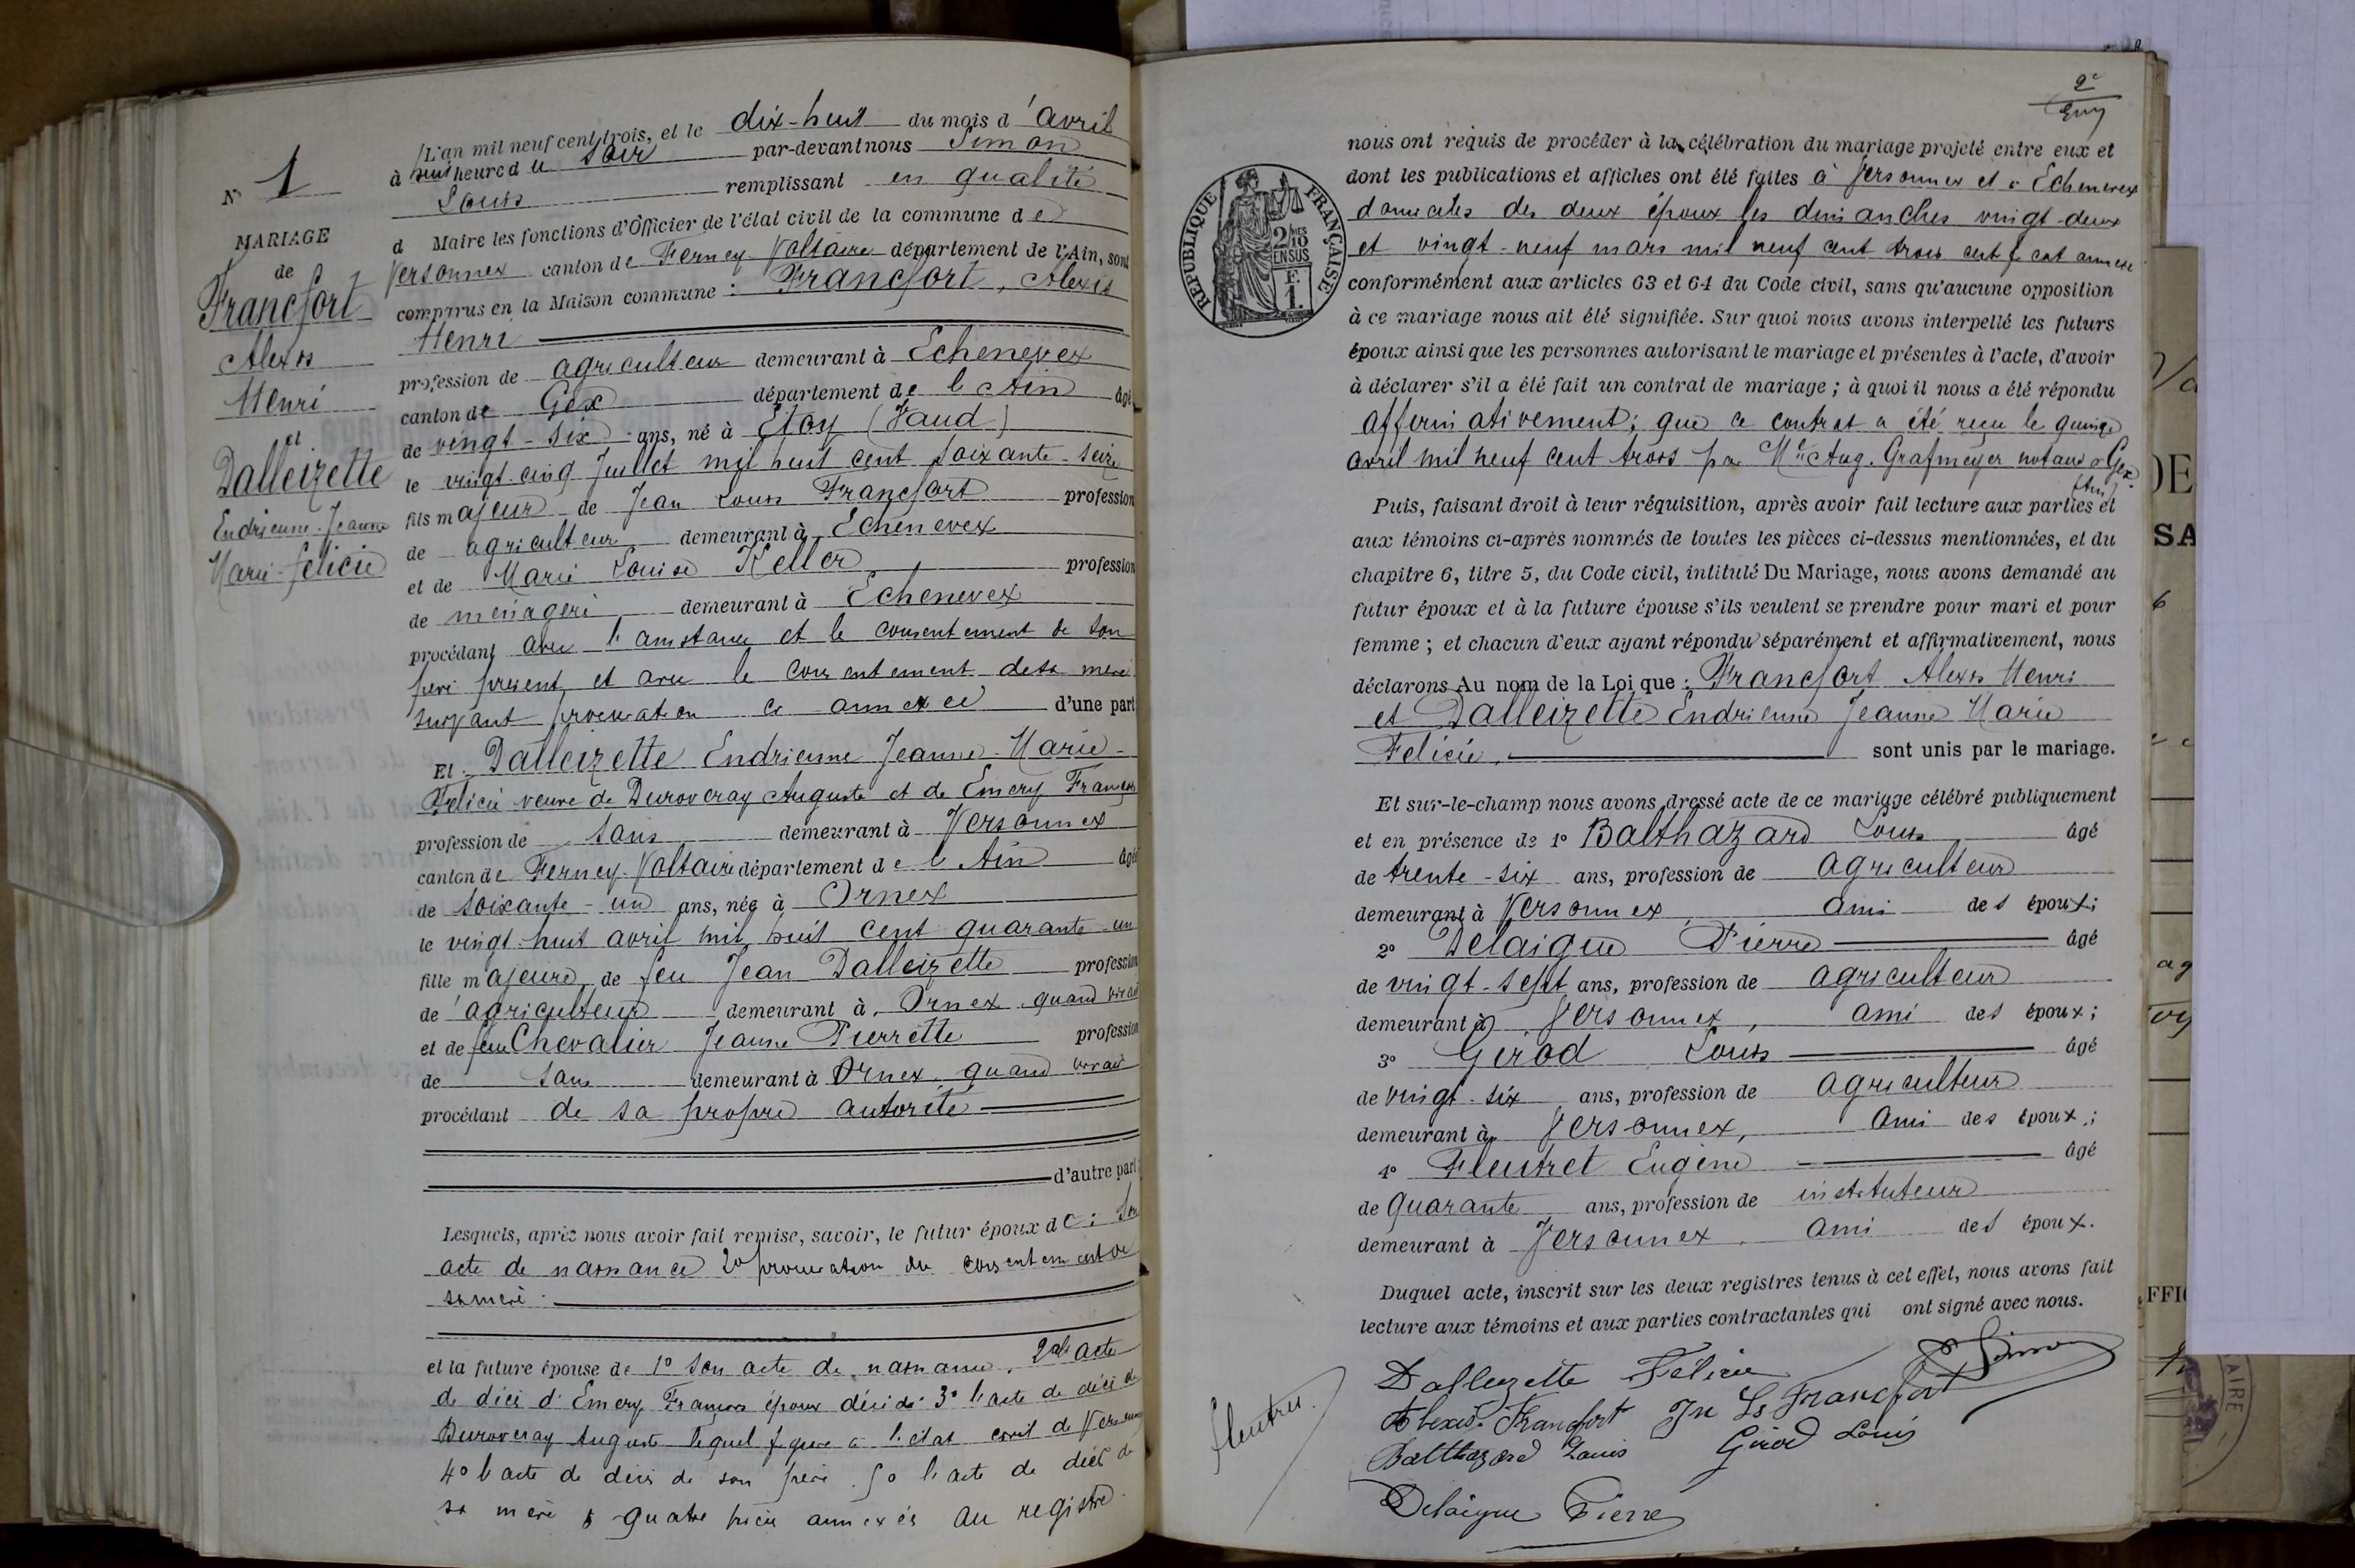 L'an mil neuf cent trois, et le dix-huit du mois d'avril
à huit heure du soir par-devant nous Simon
Louis remplissant en qualité
d Maire les fonctions d'Officier de l'état civil de la commune de
Versonnex canton de Ferney-Voltaire département de l'Ain, sont
comparus en la Maison commune : Francfort, Alexis
Henri
profession de agriculteur demeurant à Echenevex
canton de Gex département de l'Ain âgé
de vingt-six ans, né à Etoy (Vaud)
le vingt-cinq Juillet mil huit cent soixante-seize
fils majeur de Jean Louis Francfort profession
de agriculteur demeurant à Echenevex
et de Marie Louise Keller profession
de ménagère demeurant à Echenevex
procédant avec l'assistance et le consentement de son
père présent et avec le consentement de sa mère
suivant procuration ci annexée d'une part
Et : Dalleizette Endrienne Jeanne-Marie-
Félicie veuve de Duroveray Auguste et de Emery François
profession de sans demeurant à Versonnex
canton de Ferney-Voltaire département de l'Ain âgée
de soixante-un ans, née à Ornex
le vingt-huit avril mil huit cent quarante-un
fille majeure de feu Jean Dalleizette profession
de agriculteur demeurant à Ornex quand vivait
et de feue Chevalier Jeanne Pierrette profession
de sans demeurant à Ornex quand vivait
procédant de sa propre autorité
d'autre part
Lesquels, après nous avoir fait remise, savoir, le futur époux de : Son
acte de naissance 2° procuration du consentement de
sa mère.
et la future épouse de 1° son acte de naissance. 2° l'acte
de décès d'Emery François époux décédé 3° l'acte de décès de
Duroveray Auguste lequel figure à l'état civil de Versonnex
4° l'acte de décès de son père. 5° l'acte de décès de
sa mère quatre pièces annexées au registre.
N° 1
MARIAGE
de
Francfort
Alexis
Henri
et
Dalleizette
Endrienne-Jeanne
Marie-Félicie
2e
nous ont requis de procéder à la célébration du mariage projeté entre eux et
dont les publications et affiches ont été faites à Versonnex et à Echenevex
domiciles des deux époux les dimanches vingt-deux
et vingt-neuf mars mil neuf cent trois cert f cat annexé
conformément aux articles 63 et 64 du Code civil, sans qu'aucune opposition
à ce mariage nous ait été signifiée. Sur quoi nous avons interpellé les futurs
époux ainsi que les personnes autorisant le mariage et présentes à l'acte, d'avoir
à déclarer s'il a été fait un contrat de mariage ; à quoi il nous a été répondu
affirmativement ; que ce contrat a été reçu le quinze
avril mil neuf cent trois par Me Aug. Grafmeyer notaire à Gex
(Ain).
Puis, faisant droit à leur réquisition, après avoir fait lecture aux parties et
aux témoins ci-après nommés de toutes les pièces ci-dessus mentionnées, et du
chapitre 6, titre 5, du Code civil, intitulé Du Mariage, nous avons demandé au
futur époux et à la future épouse s'ils veulent se prendre pour mari et pour
femme ; et chacun d'eux ayant répondu séparément et affirmativement, nous
déclarons Au nom de la Loi que : Francfort Alexis Henri
et Dalleizette Endrienne Jeanne Marie
Félicie, sont unis par le mariage.
Et sur-le-champ nous avons dressé acte de ce mariage célébré publiquement
et en présence de 1° Balthazard Louis âgé
de trente-six ans, profession de agriculteur
demeurant à Versonnex, ami des époux ;
2° Delaigue Pierre âgé
de vingt-sept ans, profession de agriculteur
demeurant à Versonnex, ami des époux ;
3° Gerod Louis âgé
de vingt-six ans, profession de agriculteur
demeurant à Versonnex, ami des époux ;
4° Fleutret Eugène âgé
de quarante ans, profession de instituteur
demeurant à Versonnex. ami des époux.
Duquel acte, inscrit sur les deux registres tenus à cet effet, nous avons fait
lecture aux témoins et aux parties contractantes qui ont signé avec nous.
Dalleizette Félicie L Simon
Alexis Francfort Jn Ls Francfort
Balthazard Louis Gérod Louis
Delaigue Pierre
fleutret
RÉPUBLIQUE FRANÇAISE
2/10
EN SUS
F.
1.
DE
SA
6